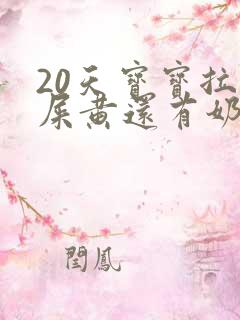 20天寶寶拉
屎黄還有奶
閏鳳